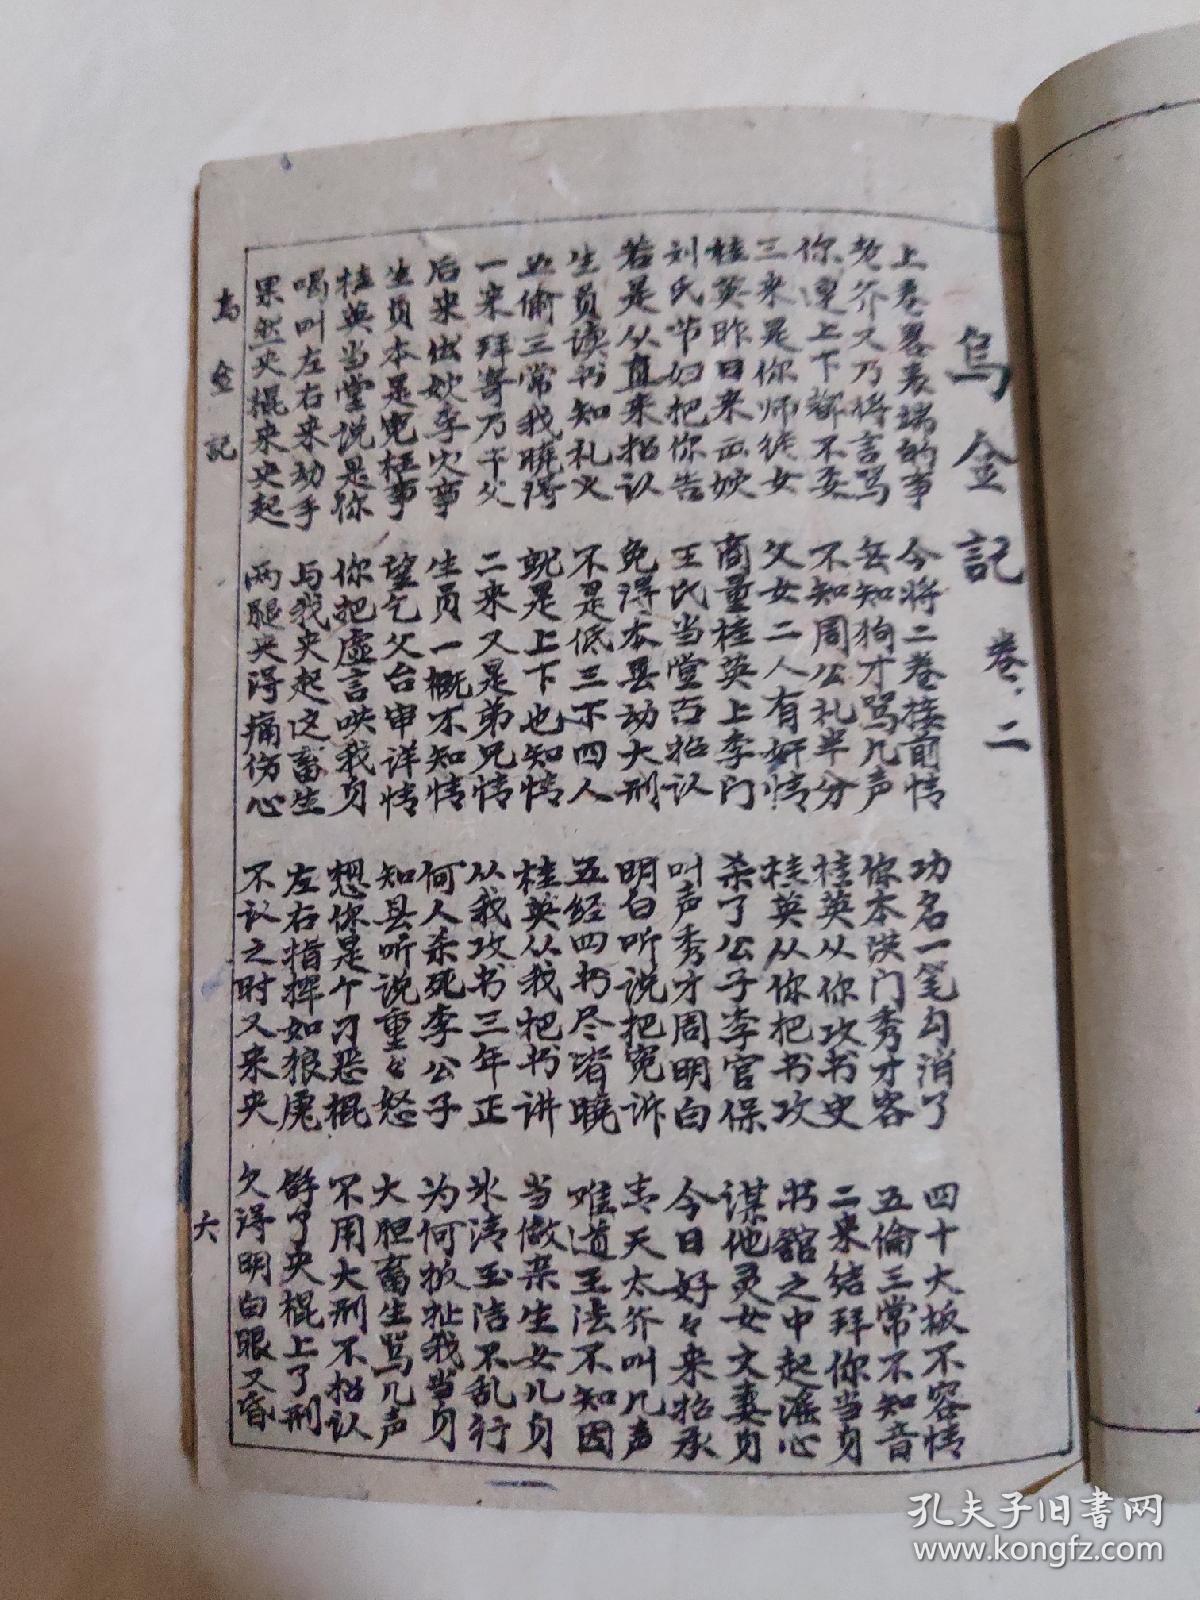 烏金記 卷二
上卷畧表端的事 今将二卷接前情 功名一笔勾消了 四十大板不容情
老爷又乃将言骂 无知狗才骂几声 你本洪门秀才客 五倫三常不知音
你連上下都不委 不知周公礼半分 桂英从你攻书史 二来结拜你当身
三来是你师徒女 父女二人有奸情 桂英从你把书攻 书舘之中起滛心
桂英昨日来出嫁 商量桂英上李门 杀了公子李官保 谋他灵女文妻身
刘氏节妇把你告 王氏当堂否招认 叫声秀才周明白 今日好々来招承
若是从直来招认 免得本县动大刑 明白听说把宽诉 青天太爷叫几声
生员读书知礼义 不是低三下四人 五经四书尽皆曉 难道王法不知因
五倫三常我曉得 就是上下也知情 桂英从我把书讲 当做亲生女儿身
一来拜寄乃干父 二来又是弟兄情 从我攻书三年正 氷清玉洁不乱行
后来出嫁李宅事 生员一概不知情 何人杀死李公子 为何扳扯我当身
生员本是寃枉事 望乞父台审详情 知县听说重々怒 大胆畜生骂几声
桂英当堂说是你 你把虚言哄我身 想你是个刁恶棍 不用大刑不招认
喝叫左右来动手 与我夹起这畜生 左右指挥如狼虎 夹棍上了刑
果然夹棍来夹起 两腿夹得痛伤心 不认之时又来夹 欠得明白眼又昏
烏金記
六
孔夫子旧書网
www.kongfz.com